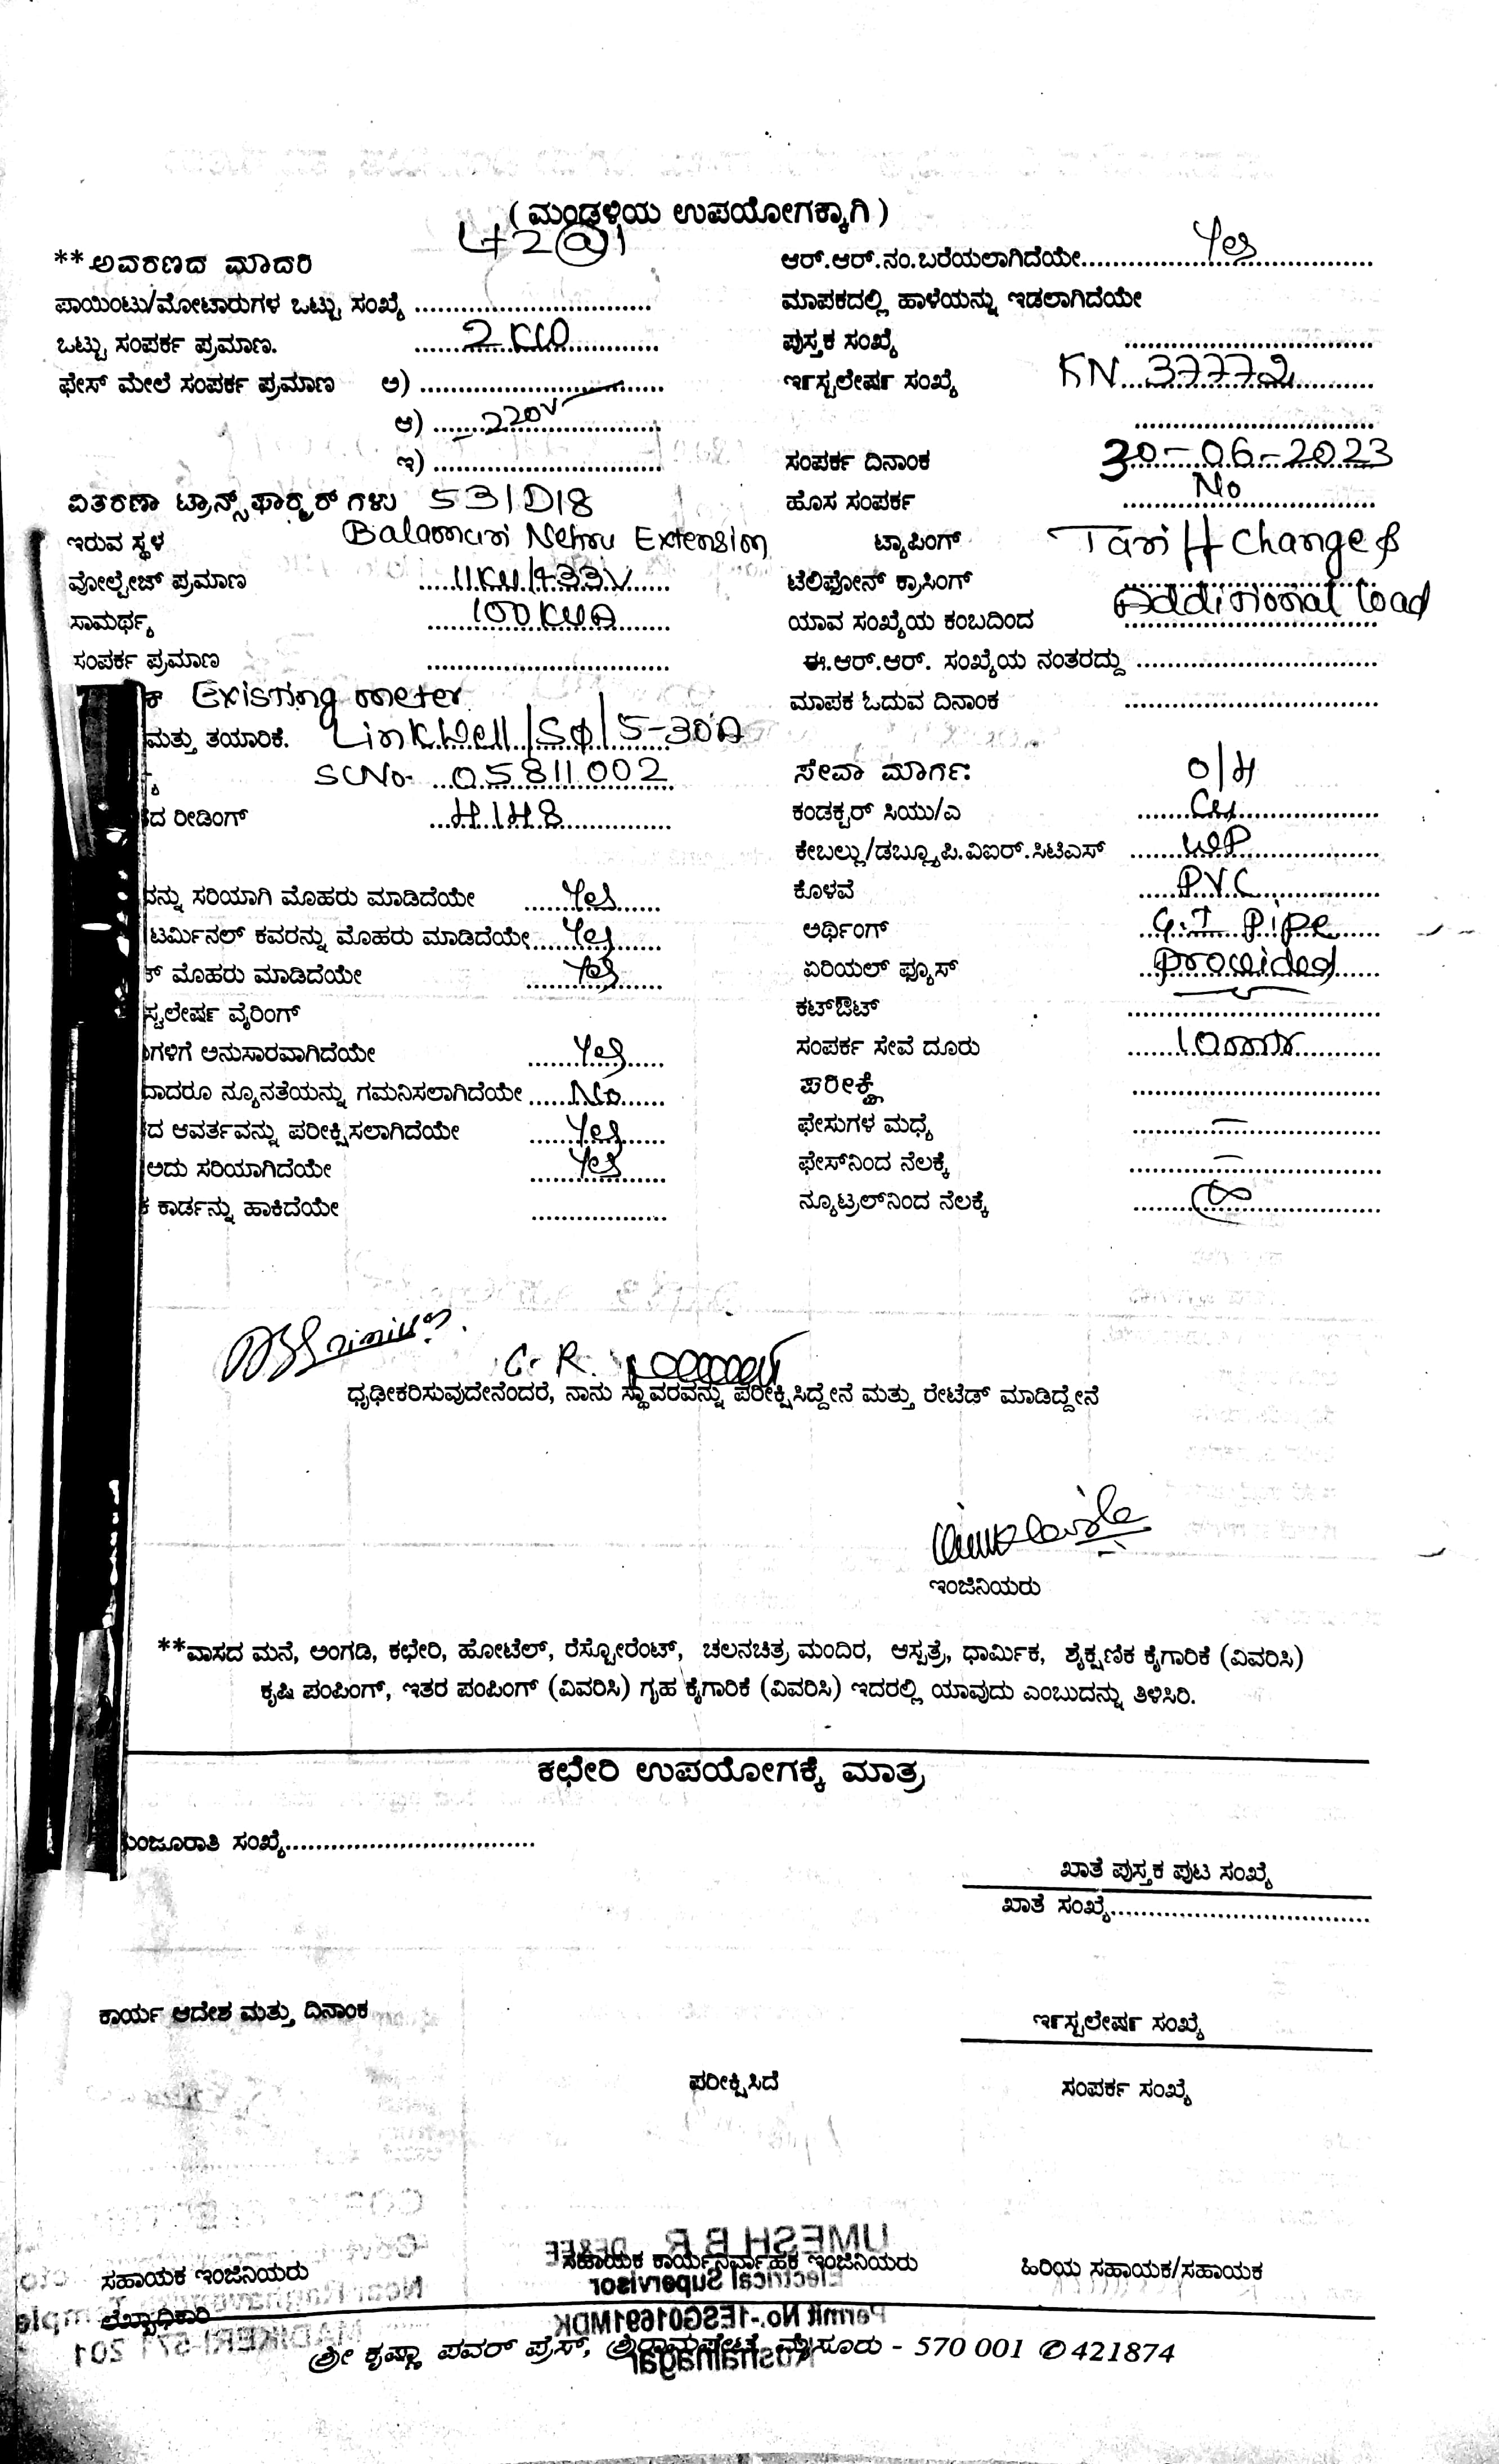 ( ಮಂಡಳಿಯ ಉಪಯೋಗಕ್ಕಾಗಿ )
**ಅವರಣದ ಮಾದರಿ
ಪಾಯಿಂಟು/ಮೋಟಾರುಗಳ ಒಟ್ಟು ಸಂಖ್ಯೆ ..............................
ಒಟ್ಟು ಸಂಪರ್ಕ ಪ್ರಮಾಣ. 2 KW
ಫೇಸ್ ಮೇಲೆ ಸಂಪರ್ಕ ಪ್ರಮಾಣ ಅ) ..............................
ಆ) 220V
ಇ) ..............................
ವಿತರಣಾ ಟ್ರಾನ್ಸ್‌ಫಾರ್ಮರ್ ಗಳು 531D18
ಇರುವ ಸ್ಥಳ Balamuri Nehru Extension
ವೋಲ್ಟೇಜ್ ಪ್ರಮಾಣ 11KV/433V
ಸಾಮರ್ಥ್ಯ 100KVA
ಸಂಪರ್ಕ ಪ್ರಮಾಣ ..............................
Existing meter
ಮತ್ತು ತಯಾರಿಕೆ. Linkwell/Sφ/5-30A
SLNo. 05811002
ದ ರೀಡಿಂಗ್ 4148
ನನ್ನು ಸರಿಯಾಗಿ ಮೊಹರು ಮಾಡಿದೆಯೇ Yes
ಟರ್ಮಿನಲ್ ಕವರನ್ನು ಮೊಹರು ಮಾಡಿದೆಯೇ Yes
ಕ್ ಮೊಹರು ಮಾಡಿದೆಯೇ Yes
ಸ್ಟಲೇಷನ ವೈರಿಂಗ್
ಗಳಿಗೆ ಅನುಸಾರವಾಗಿದೆಯೇ Yes
ದಾದರೂ ನ್ಯೂನತೆಯನ್ನು ಗಮನಿಸಲಾಗಿದೆಯೇ No
ದ ಆವರ್ತವನ್ನು ಪರೀಕ್ಷಿಸಲಾಗಿದೆಯೇ Yes
ಅದು ಸರಿಯಾಗಿದೆಯೇ Yes
ಕಾರ್ಡನ್ನು ಹಾಕಿದೆಯೇ ..................
ಆರ್.ಆರ್.ನಂ.ಬರೆಯಲಾಗಿದೆಯೇ Yes
ಮಾಪಕದಲ್ಲಿ ಹಾಳೆಯನ್ನು ಇಡಲಾಗಿದೆಯೇ
ಪುಸ್ತಕ ಸಂಖ್ಯೆ ..............................
ಇನ್‌ಸ್ಟಲೇಷನ್ ಸಂಖ್ಯೆ KN 37772
ಸಂಪರ್ಕ ದಿನಾಂಕ 30-06-2023
ಹೊಸ ಸಂಪರ್ಕ No
ಟ್ಯಾಪಿಂಗ್ Tariff change &
ಟೆಲಿಫೋನ್ ಕ್ರಾಸಿಂಗ್ Additional load
ಯಾವ ಸಂಖ್ಯೆಯ ಕಂಬದಿಂದ
ಈ.ಆರ್.ಆರ್. ಸಂಖ್ಯೆಯ ನಂತರದ್ದು ..............................
ಮಾಪಕ ಓದುವ ದಿನಾಂಕ ..............................
ಸೇವಾ ಮಾರ್ಗ: O/H
ಕಂಡಕ್ಟರ್ ಸಿಯು/ಎ Cu
ಕೇಬಲ್ಲು/ಡಬ್ಲ್ಯೂಪಿ.ವಿಐರ್.ಸಿಟಿಎಸ್ WP
ಕೊಳವೆ PVC
ಅರ್ಥಿಂಗ್ G.I Pipe
ಏರಿಯಲ್ ಫ್ಯೂಸ್ Provided
ಕಟ್‌ಔಟ್ ..............................
ಸಂಪರ್ಕ ಸೇವೆ ದೂರು 10mtr
ಪರೀಕ್ಷೆ ..............................
ಫೇಸುಗಳ ಮಧ್ಯೆ –
ಫೇಸ್‌ನಿಂದ ನೆಲಕ್ಕೆ –
ನ್ಯೂಟ್ರಲ್‌ನಿಂದ ನೆಲಕ್ಕೆ
C. R.
ಧೃಢೀಕರಿಸುವುದೇನೆಂದರೆ, ನಾನು ಸ್ಥಾವರವನ್ನು ಪರೀಕ್ಷಿಸಿದ್ದೇನೆ ಮತ್ತು ರೇಟೆಡ್ ಮಾಡಿದ್ದೇನೆ
ಇಂಜಿನಿಯರು
**ವಾಸದ ಮನೆ, ಅಂಗಡಿ, ಕಛೇರಿ, ಹೋಟೆಲ್, ರೆಸ್ಟೋರೆಂಟ್, ಚಲನಚಿತ್ರ ಮಂದಿರ, ಆಸ್ಪತ್ರೆ, ಧಾರ್ಮಿಕ, ಶೈಕ್ಷಣಿಕ ಕೈಗಾರಿಕೆ (ವಿವರಿಸಿ)
ಕೃಷಿ ಪಂಪಿಂಗ್, ಇತರ ಪಂಪಿಂಗ್ (ವಿವರಿಸಿ) ಗೃಹ ಕೈಗಾರಿಕೆ (ವಿವರಿಸಿ) ಇದರಲ್ಲಿ ಯಾವುದು ಎಂಬುದನ್ನು ತಿಳಿಸಿರಿ.
ಕಛೇರಿ ಉಪಯೋಗಕ್ಕೆ ಮಾತ್ರ
ಮಂಜೂರಾತಿ ಸಂಖ್ಯೆ................................
ಖಾತೆ ಪುಸ್ತಕ ಪುಟ ಸಂಖ್ಯೆ
ಖಾತೆ ಸಂಖ್ಯೆ................................
ಕಾರ್ಯ ಆದೇಶ ಮತ್ತು ದಿನಾಂಕ
ಇನ್‌ಸ್ಟಲೇಷನ್ ಸಂಖ್ಯೆ
ಪರೀಕ್ಷಿಸಿದೆ
ಸಂಪರ್ಕ ಸಂಖ್ಯೆ
UMESH B R DE&EE
ಸಹಾಯಕ ಇಂಜಿನಿಯರು
ಸಹಾಯಕ ಕಾರ್ಯನಿರ್ವಾಹಕ ಇಂಜಿನಿಯರು
ಹಿರಿಯ ಸಹಾಯಕ/ಸಹಾಯಕ
Electrical Supervisor
ಲೆಖ್ಖಾಧಿಕಾರಿ
Permit No.-1ESG01691MDK
MADIKERI-571 201
ಶ್ರೀ ಕೃಷ್ಣಾ ಪವರ್ ಪ್ರೆಸ್, ಶ್ರೀರಾಮಪೇಟೆ, ಮೈಸೂರು - 570 001 ✆421874
Kushalnagar